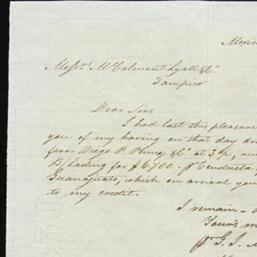 Mexico
Messrs. McCalmont Lyall & Co.
Tampico
Dear Sirs
I had last this pleasure
you of my having on that day dr
favor Diego P. & Co. at 3 d/s, an
B/lading for $6700 - p Conducta,
Guanajuato, which on arrival you
to my credit.
I remain -
Yours